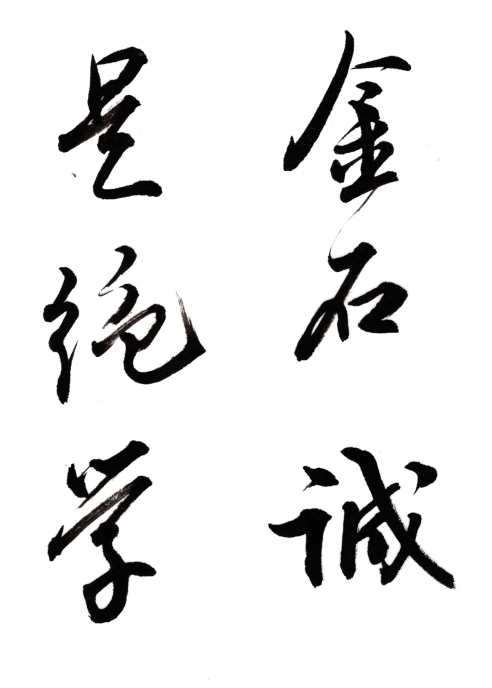 金石诚
是绝学